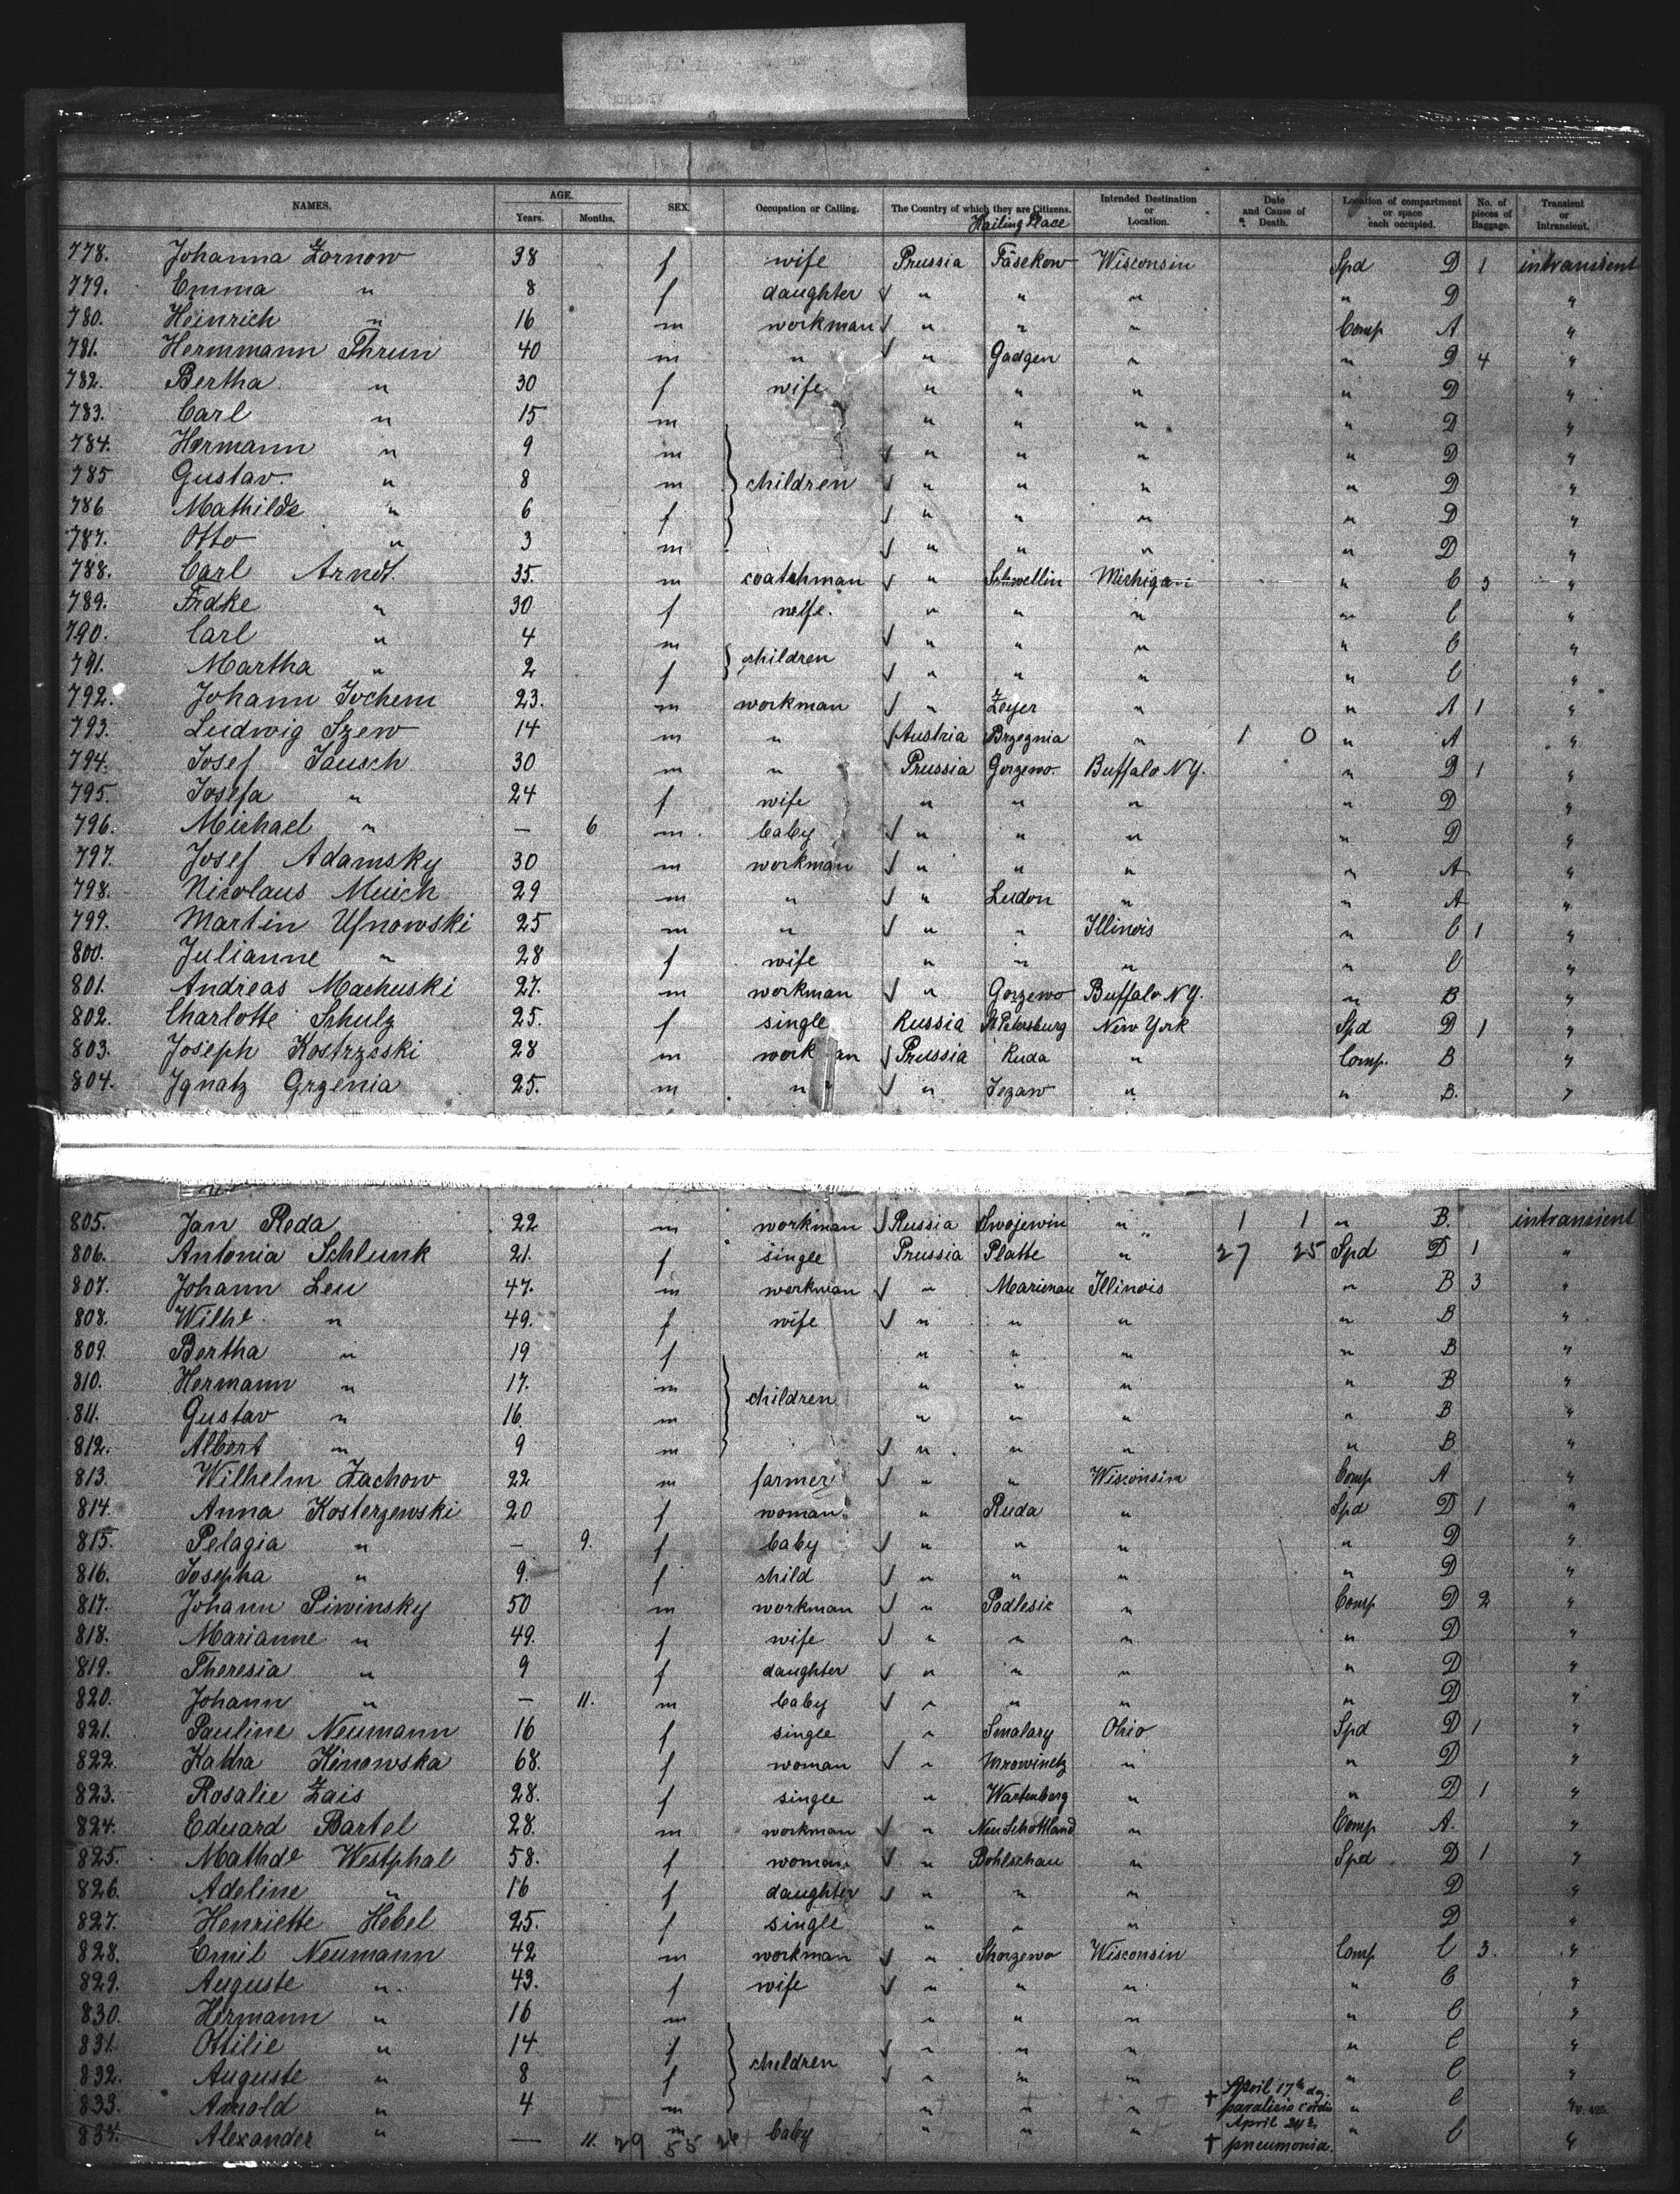 NAMES. AGE. Years. Months. SEX. Occupation or Calling. The Country of which they are Citizens. Hailing Place Intended Destination or Location. Date and Cause of Death. Location of compartment or space each occupied. No. of pieces of Baggage. Transient or Intransient.
778. Johanna Zornow 38 f wife Prussia Fäsekow Wisconsin Spd D 1 intransient
779. Emma " 8 f daughter √ " " " " D "
780. Heinrich " 16 m workman √ " " " Comp A "
781. Hermmann Thrun 40 m " √ " Gadgen " " D 4 "
782. Bertha " 30 f wife " " " " D "
783. Carl " 15 m " " " " D "
784. Hermann " 9 m √ " " " " D "
785 Gustav. " 8 m children √ " " " " D "
786 Mathilde " 6 f √ " " " " D "
787. Otto " 3 m √ " " " " D "
788. Carl Arndt. 35. m coatchman √ " Schwellin Michigan " C 3 "
789. Frdke " 30 f wife. " " " " C "
790. Carl " 4 m √ " " " " C "
791. Martha " 2 f children √ " " " " C "
792. Johann Jochem 23. m workman √ " Zeyer " " A 1 "
793. Ludwig Szew 14 m " √ Austria Brzegnia " 1 0 " A "
794. Josef Jausch 30 m " Prussia Gorzewo. Buffalo NY. " D 1 "
795. Josefa " 24 f wife " " " " D "
796. Michael " — 6 m. baby √ " " " " D "
797. Josef Adamsky 30 m workman √ " " " " A "
798. Nicolaus Muich 29 m " √ " Ludon " " A "
799. Martin Ufnowski 25 m " √ " " Illinois " C 1 "
800. Julianne " 28 f wife " " " " C "
801. Andreas Machuski 27. m workman √ " Gorzewo Buffalo NY. " B "
802. Charlotte Schulz 25. f single Russia St Petersburg New York Spd D 1 "
803. Joseph Kostrzeski 28 m workman √ Prussia Ruda " Comp. B "
804. Ignatz Grzenia 25. m " √ " Jezaw " " B. "
805. Jan Reda 22 m workman √ Russia Swojewin " 1 1 " B. intransient
806. Antonia Schlunk 21. f single Prussia Platte " 27 25 Spd D 1 "
807. Johann Leu 47. m workman √ " Marienau Illinois " B 3 "
808. Wilhe " 49. f wife √ " " " " B "
809. Bertha " 19 f " " " " B "
810. Hermann " 17. m children " " " " B "
811. Gustav " 16 m " " " " B "
812. Albert " 9 m √ " " " " B "
813. Wilhelm Zachow 22 m farmer √ " " Wisconsin Comp A "
814. Anna Kosterzewski 20 f woman " Ruda " Spd D 1 "
815. Pelagia " — 9. f baby √ " " " " D "
816. Josepha " 9. f child √ " " " " D "
817. Johann Piwinsky 50 m workman √ " Podlesie " Comp D 2 "
818. Marianne " 49. f wife √ " " " " D "
819. Theresia " 9 f daughter √ " " " " D "
820. Johann " — 11. m baby √ " " " " D "
821. Pauline Neumann 16 f single " Smalary Ohio Spd D 1 "
822. Katha Kinowska 68. f woman √ " Mrowinetz " " D "
823. Rosalie Zais 28. f single " Wartenberg " " D 1 "
824. Eduard Bartel 28. m workman √ " Neu Schottland " Comp A. "
825. Mathde Westphal 58. f woman √ " Bohlschau " Spd D 1 "
826. Adeline " 16 f daughter √ " " " D "
827. Henriette Hebel 25. f single " " " D "
828. Emil Neumann 42 m workman √ " Skorzewo Wisconsin Comp C 3. "
829. Auguste " 43. f wife √ " " " " C "
830. Hermann " 16 m " " " " C "
831. Ottilie " 14 f children √ " " " " C "
832. Auguste " 8 f √ " " " " C "
833. Arnold " 4 m " " " † April 17th dy. paralisis cordis " C "
834. Alexander " — 11. 29 m 55 26 baby " " " † April 24th. pneumonia. " C "